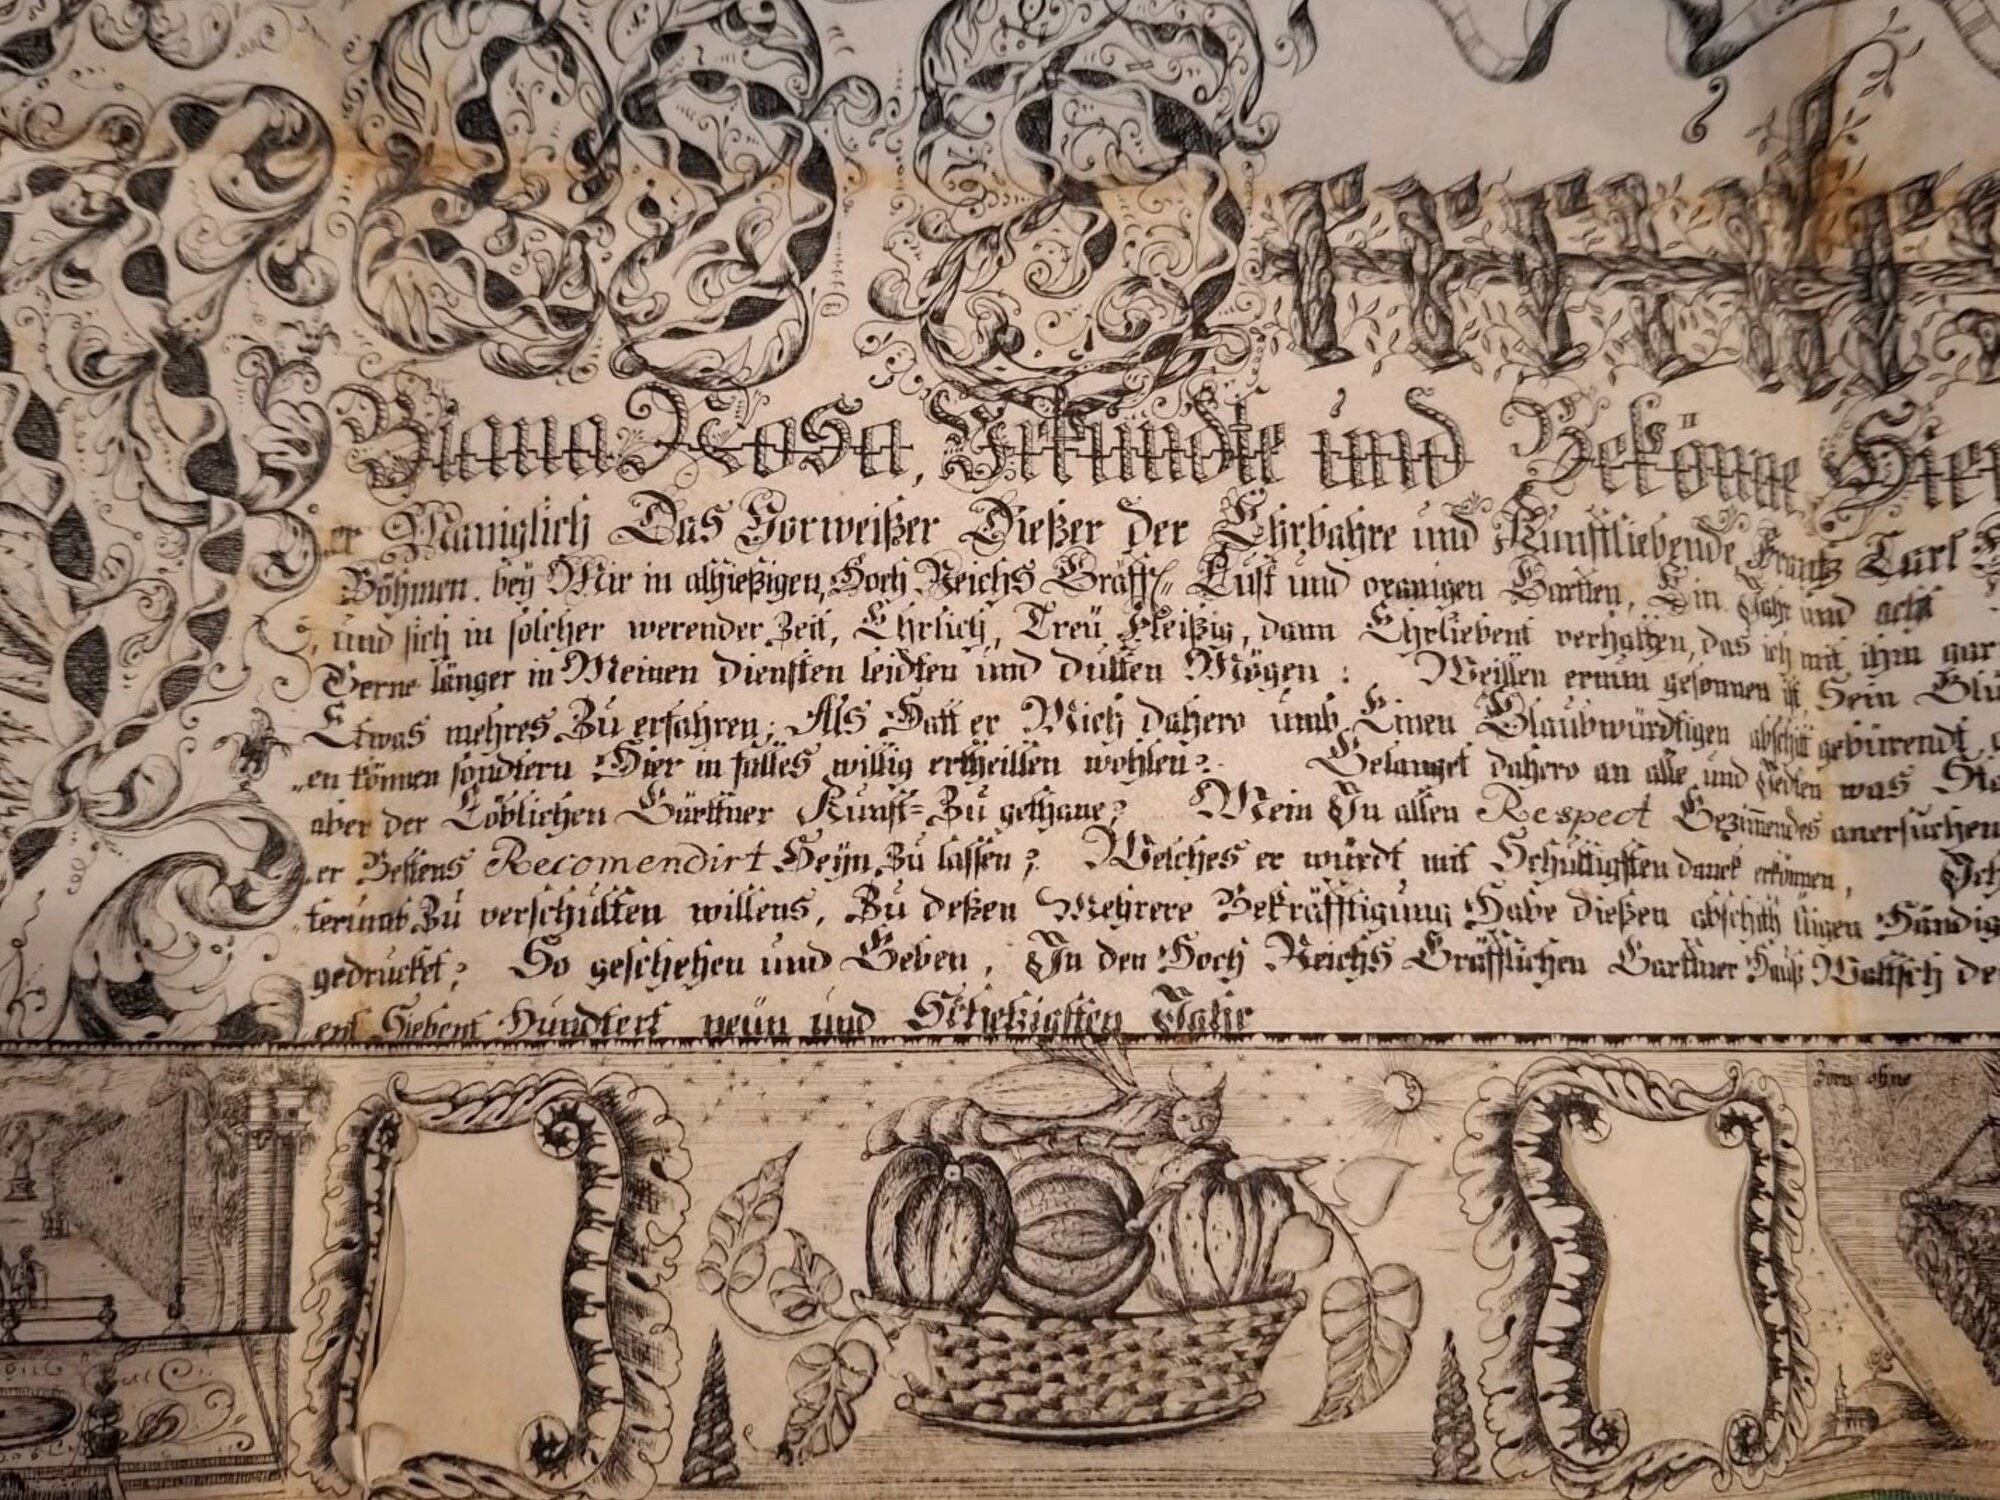 Biana Rosa, Urkundte und Bekönne Hier
Maniglich Das Vorweißer Dießer der Ehrbahre und Kunstliebende, Frantz Carl
Böhmen. bey Mir in alhießigen, Hoch Reichs Gräffl Lust und oranigen Gartten, Ein Jahr und acht
und sich in solcher werender Zeit, Ehrlich, Treü Fleißig, dann Ehrliebent verhalten, das ich mit ihm gar
Gerne länger in Meinen diensten leidten und dulten Mögen : Weillen ernun gesonnen ist, Sein Glü
Etwas mehres Zu erfahren; Als Hatt er Mich dahero umb Einen Glaubwürdtigen abschitt gebürendt
en können sondtern Hier in falles willig ertheillen wohlen? Gelanget dahero an alle und Jedten was Sta
aber der Löblichen Gärttner Kunst=Zu gethane? Mein In allen Respect Gezimendes anersuchen
er Bestens Recomendirt Seyn Zu lassen? Welches er würdt mit Schultigsten danck erkönnen, Ich
terumb Zu verschulten willens, Zu deßen Mehrere Bekräfftigung Habe dießen abschith Händig
gedrucket? So geschehen und Geben, In den Hoch Reichs Gräfflichen Garttner Hauß Waltsch de
ent Siebent Hundtert neün und Jahr